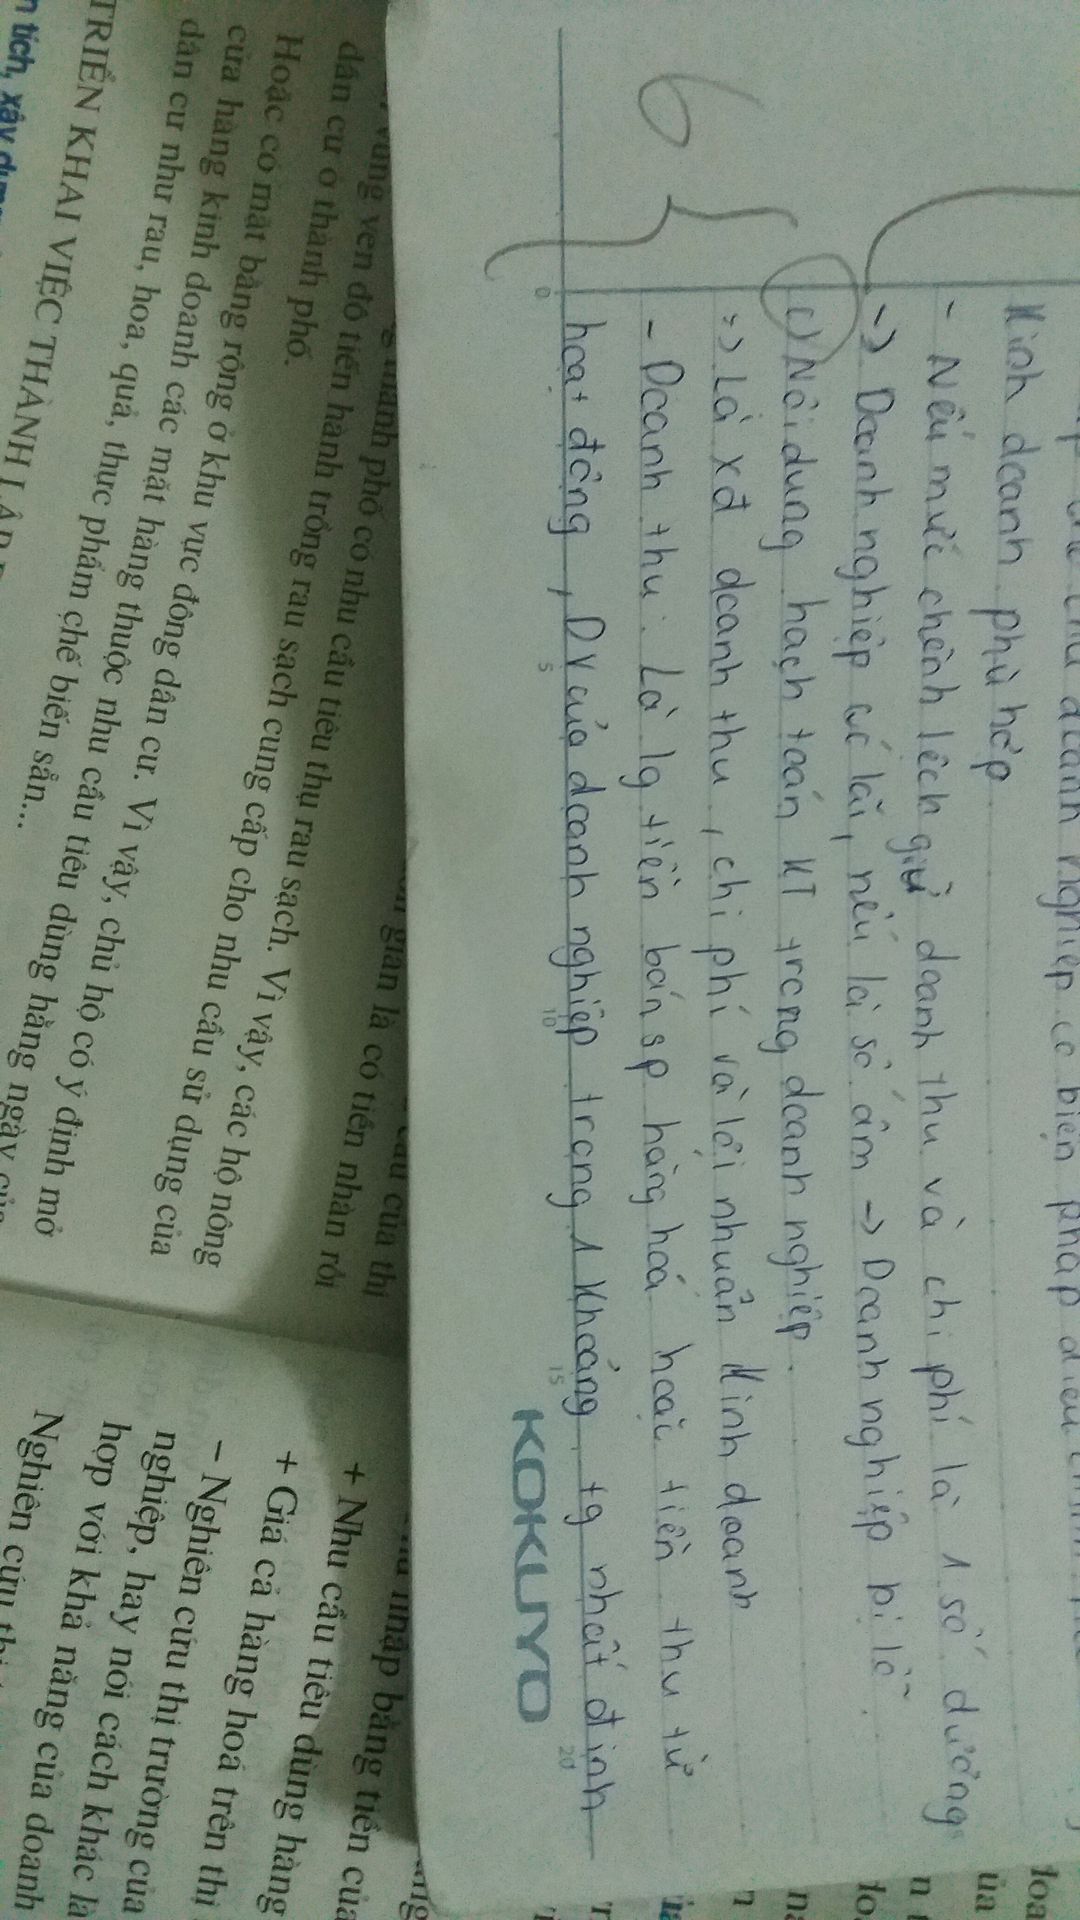 doanh nghiệp có biện pháp điều
Kinh doanh phù hợp
- Nếu mức chênh lệch giữ doanh thu và chi phí là 1 số dương
-> Doanh nghiệp có lãi, nếu là số âm -> Doanh nghiệp bị lỗ.
c) Nội dung hạch toán KT trong doanh nghiệp.
=> Là xđ doanh thu, chi phí và lợi nhuận Kinh doanh
- Doanh thu: Là lg tiền bán sp hàng hoá hoặc tiền thu từ
hoạt động, DV của doanh nghiệp trong 1 khoảng tg nhất định
6
0 5 10 15 20
KOKUYO
gian là có tiền nhàn rỗi
thành phố có nhu cầu tiêu thụ rau sạch. Vì vậy, các hộ nông
dân cư ở thành phố.
vùng ven đô tiến hành trồng rau sạch cung cấp cho nhu cầu sử dụng của
Hoặc có mặt bằng rộng ở khu vực đông dân cư. Vì vậy, chủ hộ có ý định mở
cửa hàng kinh doanh các mặt hàng thuộc nhu cầu tiêu dùng hằng ngày của
dân cư như rau, hoa, quả, thực phẩm chế biến sẵn...
TRIỂN KHAI VIỆC THÀNH LẬP
tích, xây dựng
cầu của thị
nhập bằng tiền của
+ Nhu cầu tiêu dùng hàng
+ Giá cả hàng hoá trên thị
– Nghiên cứu thị trường của
nghiệp, hay nói cách khác là
hợp với khả năng của doanh
Nghiên cứu thị